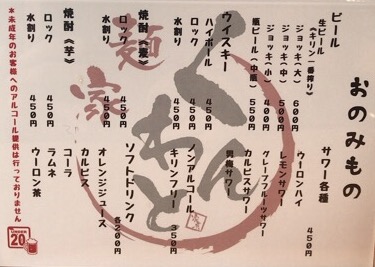 おのみもの
ビール
生ビール
《キリン一番搾り》
ジョッキ(大) 600円
ジョッキ(中) 500円
ジョッキ(小) 400円
瓶ビール(中瓶) 550円
ウイスキー
ハイボール 450円
ロック 450円
水割り 450円
焼酎《麦》
ロック 450円
水割り 450円
焼酎《芋》
ロック 450円
水割り 450円
サワー各種 450円
ウーロンハイ
レモンサワー
グレープフルーツサワー
カルピスサワー
男梅サワー
ノンアルコール
キリンフリー 350円
ソフトドリンク 各200円
オレンジジュース
カルピス
コーラ
ラムネ
ウーロン茶
※未成年のお客様へのアルコール提供は行っておりません
麺家
くわんと
20